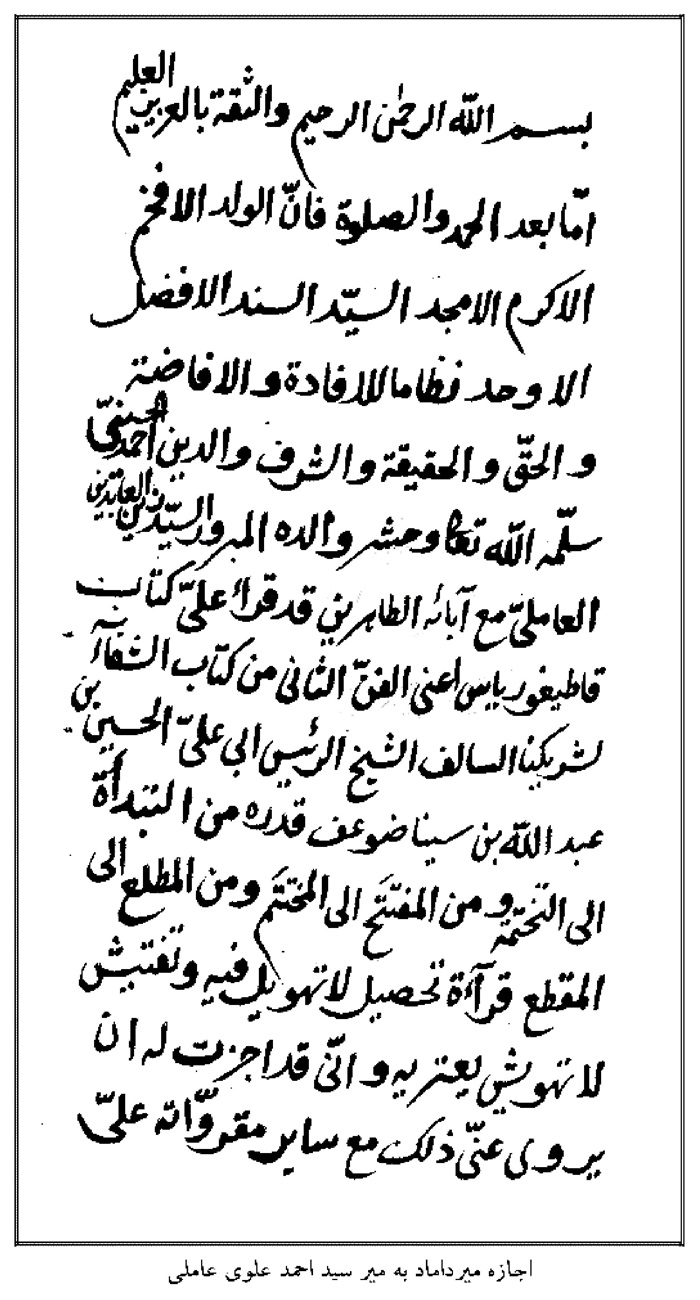 بسم الله الرحمٰن الرحیم والثقة بالعزیز العلیم
امّا بعد الحمد والصلوة فانّ الولد الافخم
الاکرم الامجد السیّد السند الافضل
الاوحد نظاما للافادة والافاضة
والحقّ والحقیقة والشرف والدین احمد الحسینیّ
سلّمه الله تعالی وحشر والده المبرور السیّد زین العابدین
العاملیّ مع آبائه الطاهرین قد قرأ علیّ کتاب
قاطیغوریاس اعنی الفنّ الثانی من کتاب الشفآء
لشریکنا السالف الشیخ الرئیس ابی علیّ الحسین بن
عبد الله بن سینا ضوعف قدره من المبتدأة
الی التختمة ومن المفتتح الی المختتم ومن المطلع الی
المقطع قرآءة تحصیل لا تهویل فیه وتفتیش
لا تهویش یعتریه وانّی قد اجزت له ان
یروی عنّی ذلک مع سایر مقروّاته علیّ
اجازه میرداماد به میر سید احمد علوی عاملی